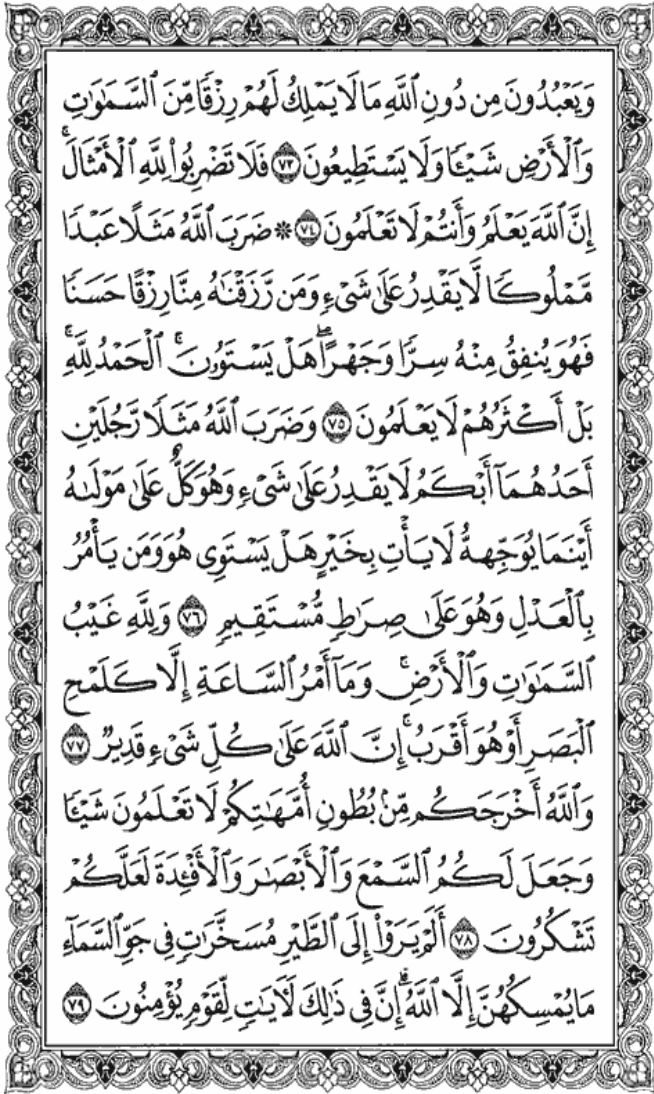 وَيَعْبُدُونَ مِن دُونِ ٱللَّهِ مَا لَا يَمْلِكُ لَهُمْ رِزْقًا مِّنَ ٱلسَّمَٰوَٰتِ
وَٱلْأَرْضِ شَيْـًٔا وَلَا يَسْتَطِيعُونَ ٧٣ فَلَا تَضْرِبُوا۟ لِلَّهِ ٱلْأَمْثَالَ ۚ
إِنَّ ٱللَّهَ يَعْلَمُ وَأَنتُمْ لَا تَعْلَمُونَ ٧٤ ۞ ضَرَبَ ٱللَّهُ مَثَلًا عَبْدًا
مَّمْلُوكًا لَّا يَقْدِرُ عَلَىٰ شَىْءٍ وَمَن رَّزَقْنَٰهُ مِنَّا رِزْقًا حَسَنًا
فَهُوَ يُنفِقُ مِنْهُ سِرًّا وَجَهْرًا ۖ هَلْ يَسْتَوُۥنَ ۚ ٱلْحَمْدُ لِلَّهِ ۚ
بَلْ أَكْثَرُهُمْ لَا يَعْلَمُونَ ٧٥ وَضَرَبَ ٱللَّهُ مَثَلًا رَّجُلَيْنِ
أَحَدُهُمَآ أَبْكَمُ لَا يَقْدِرُ عَلَىٰ شَىْءٍ وَهُوَ كَلٌّ عَلَىٰ مَوْلَىٰهُ
أَيْنَمَا يُوَجِّههُّ لَا يَأْتِ بِخَيْرٍ هَلْ يَسْتَوِى هُوَ وَمَن يَأْمُرُ
بِٱلْعَدْلِ وَهُوَ عَلَىٰ صِرَٰطٍ مُّسْتَقِيمٍ ٧٦ وَلِلَّهِ غَيْبُ
ٱلسَّمَٰوَٰتِ وَٱلْأَرْضِ ۚ وَمَآ أَمْرُ ٱلسَّاعَةِ إِلَّا كَلَمْحِ
ٱلْبَصَرِ أَوْ هُوَ أَقْرَبُ ۚ إِنَّ ٱللَّهَ عَلَىٰ كُلِّ شَىْءٍ قَدِيرٌ ٧٧
وَٱللَّهُ أَخْرَجَكُم مِّنۢ بُطُونِ أُمَّهَٰتِكُمْ لَا تَعْلَمُونَ شَيْـًٔا
وَجَعَلَ لَكُمُ ٱلسَّمْعَ وَٱلْأَبْصَٰرَ وَٱلْأَفْـِٔدَةَ لَعَلَّكُمْ
تَشْكُرُونَ ٧٨ أَلَمْ يَرَوْا۟ إِلَى ٱلطَّيْرِ مُسَخَّرَٰتٍ فِى جَوِّ ٱلسَّمَآءِ
مَا يُمْسِكُهُنَّ إِلَّا ٱللَّهُ ۗ إِنَّ فِى ذَٰلِكَ لَـَٔايَٰتٍ لِّقَوْمٍ يُؤْمِنُونَ ٧٩